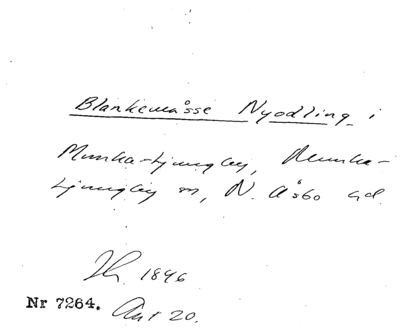 Blankemåsse Nyodling i
Munka-Ljungby, Munka-
Ljungby sn, N. Åsbo hd.
1896
Nr 7264. 20.